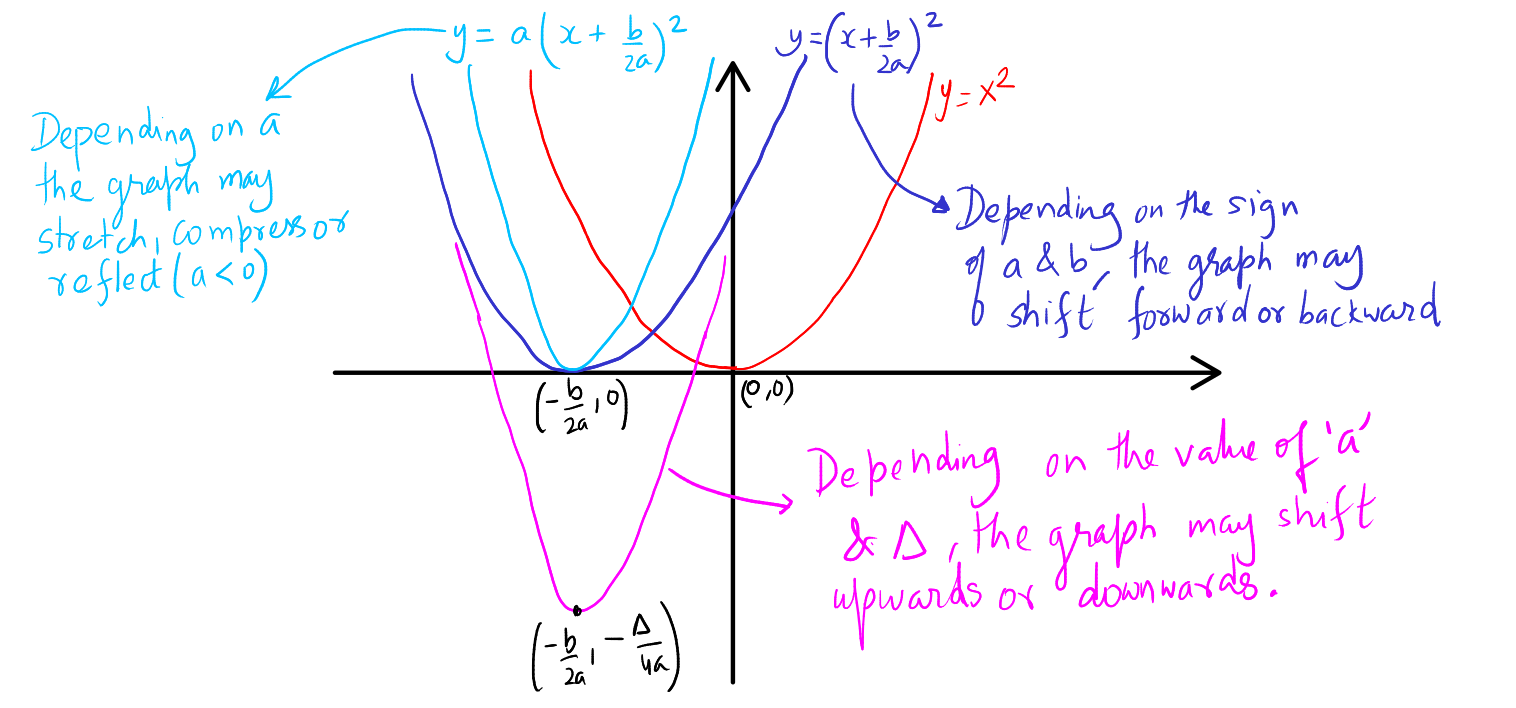 y = a(x + b/2a)²
y = (x + b/2a)²
y = x²
Depending on a
the graph may
stretch, compress or
reflect (a < 0)
Depending on the sign
of a & b, the graph may
shift forward or backward
(-b/2a, 0)
(0,0)
Depending on the value of 'a'
& Δ, the graph may shift
upwards or downwards.
(-b/2a, -Δ/4a)